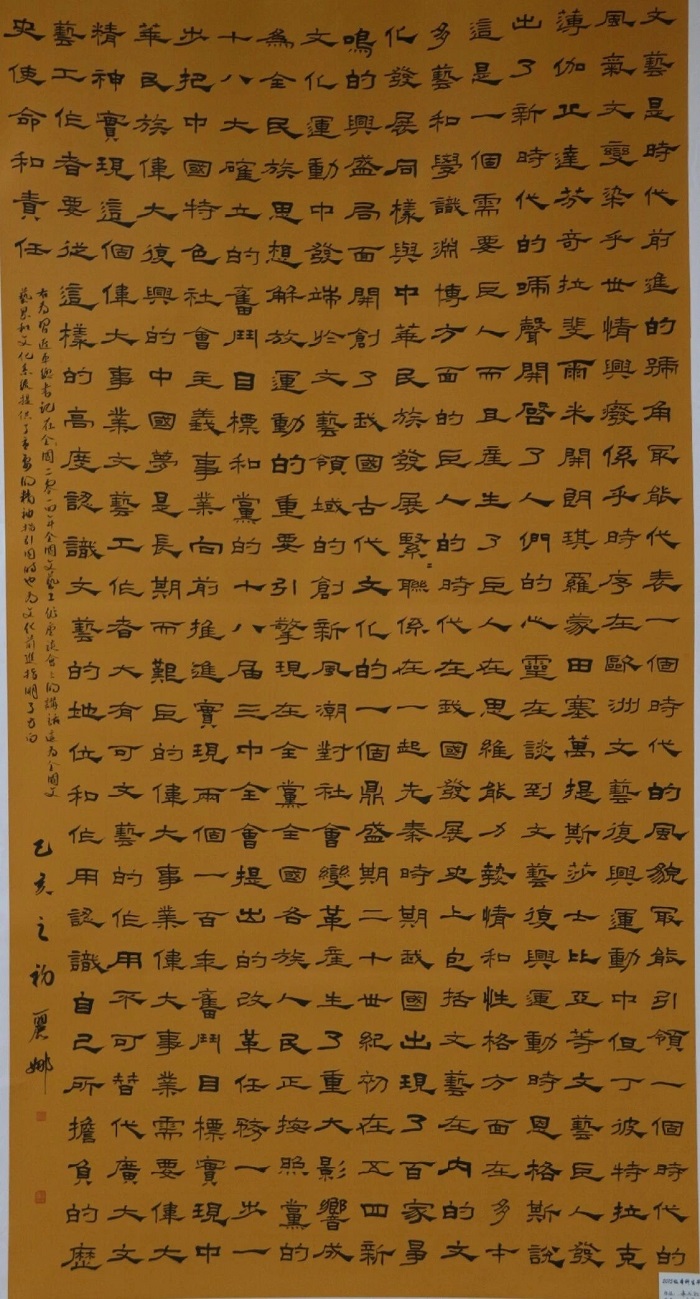 文藝是時代前進的號角最能代表一個時代的風貌最能引領一個時代的
風氣文變染乎世情興廢係乎時序在歐洲文藝復興運動中但丁彼特拉克
薄伽丘達芬奇拉斐爾米開朗琪羅蒙田塞萬提斯莎士比亞等文藝巨人發
出了新時代的啼聲開啓了人們的心靈在談到文藝復興運動時恩格斯說
這是一個需要巨人而且産生了巨人在思維能力執情和性格方面在多才
多藝和學識淵博方面的巨人的時代在我國發展史上包括文藝在内的文
化發展同樣與中華民族發展緊聯係在一起先秦時期我國出現了百家爭
鳴的興盛局面開創了我國古代文化的一個鼎盛期二十世紀初在五四新
文化運動中發端於文藝領域的創新風潮對社會變革産生了重大影響成
為全民族思想解放運動的重要引擎現在全黨全國各族人民正按照黨的
十八大確立的奮鬥目標和黨的十八届三中全會提出的改革任務一步一
步把中國特色社會主義事業向前推進實現兩個一百年奮鬥目標實現中
華民族偉大復興的中國夢是長期而艱巨的偉大事業偉大事業需要偉大
精神實現這個偉大事業文藝工作者大有可文藝的作用不可替代廣大文
藝工作者要從這樣的高度認識文藝的地位和作用認識自己所擔負的歷
史使命和責任
右為習近平總書記在全國二零一四年全國文藝工作座談會上的講話這為全國文
藝界和文化系統提供了重要的精神指引同時也為文化前進指明了方向
己亥之初麗娜